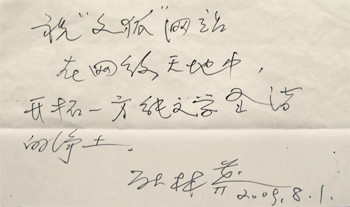 祝“文狐”网站
在网络天地中，
开拓一方纯文字圣洁
的净土。
2009.8.1.